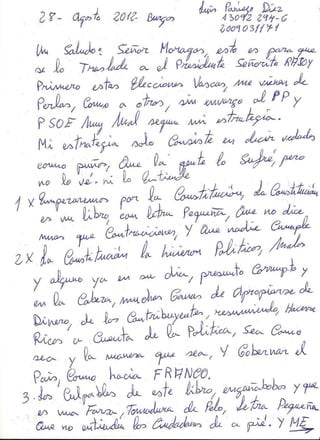 28- Agosto 2012 Burgos
Luis Pariego Diez
13092294-G
2009031171
Un Saludo: Señor Moragas, esto es para que
se lo Traslade a el Presidente Señorito RAJOY
Primero estas Elecciones Vascas, me vienen de
Perlas, Como a otros, sin envargo al PP y
PSOE Muy Mal segun mi estrategia.
Mi estrategia solo Consiste en decir verdades
como puños, Que la gente lo Sufre, pero
no lo ve. ni lo Entiende
1 X Empezaremos por la Constitución, la Constitución
es un libro con letra Pequeña, Que no dice
mas que Contraciciones, Y Que nadie Cumple
2 X La Constitución la hicieron Politicos, Malos
y alguno ya en su dia, presunto Corrupto y
en la Cabeza, muchas Ganas de Apropiarse de
Dinero, de los Contribuyentes, resumiendo, Hacerse
Ricos a Cuenta de la Politica, Sea Como
sea y la manera que sea, Y Gobernar el
Pais, Como hacia FRANCO.
3. Los Culpables de este libro, engañabobos y que
es una Farsa, Tomadura de Pelo, Letra Pequeña
Que no entienden los Ciudadanos de a pie. Y ME